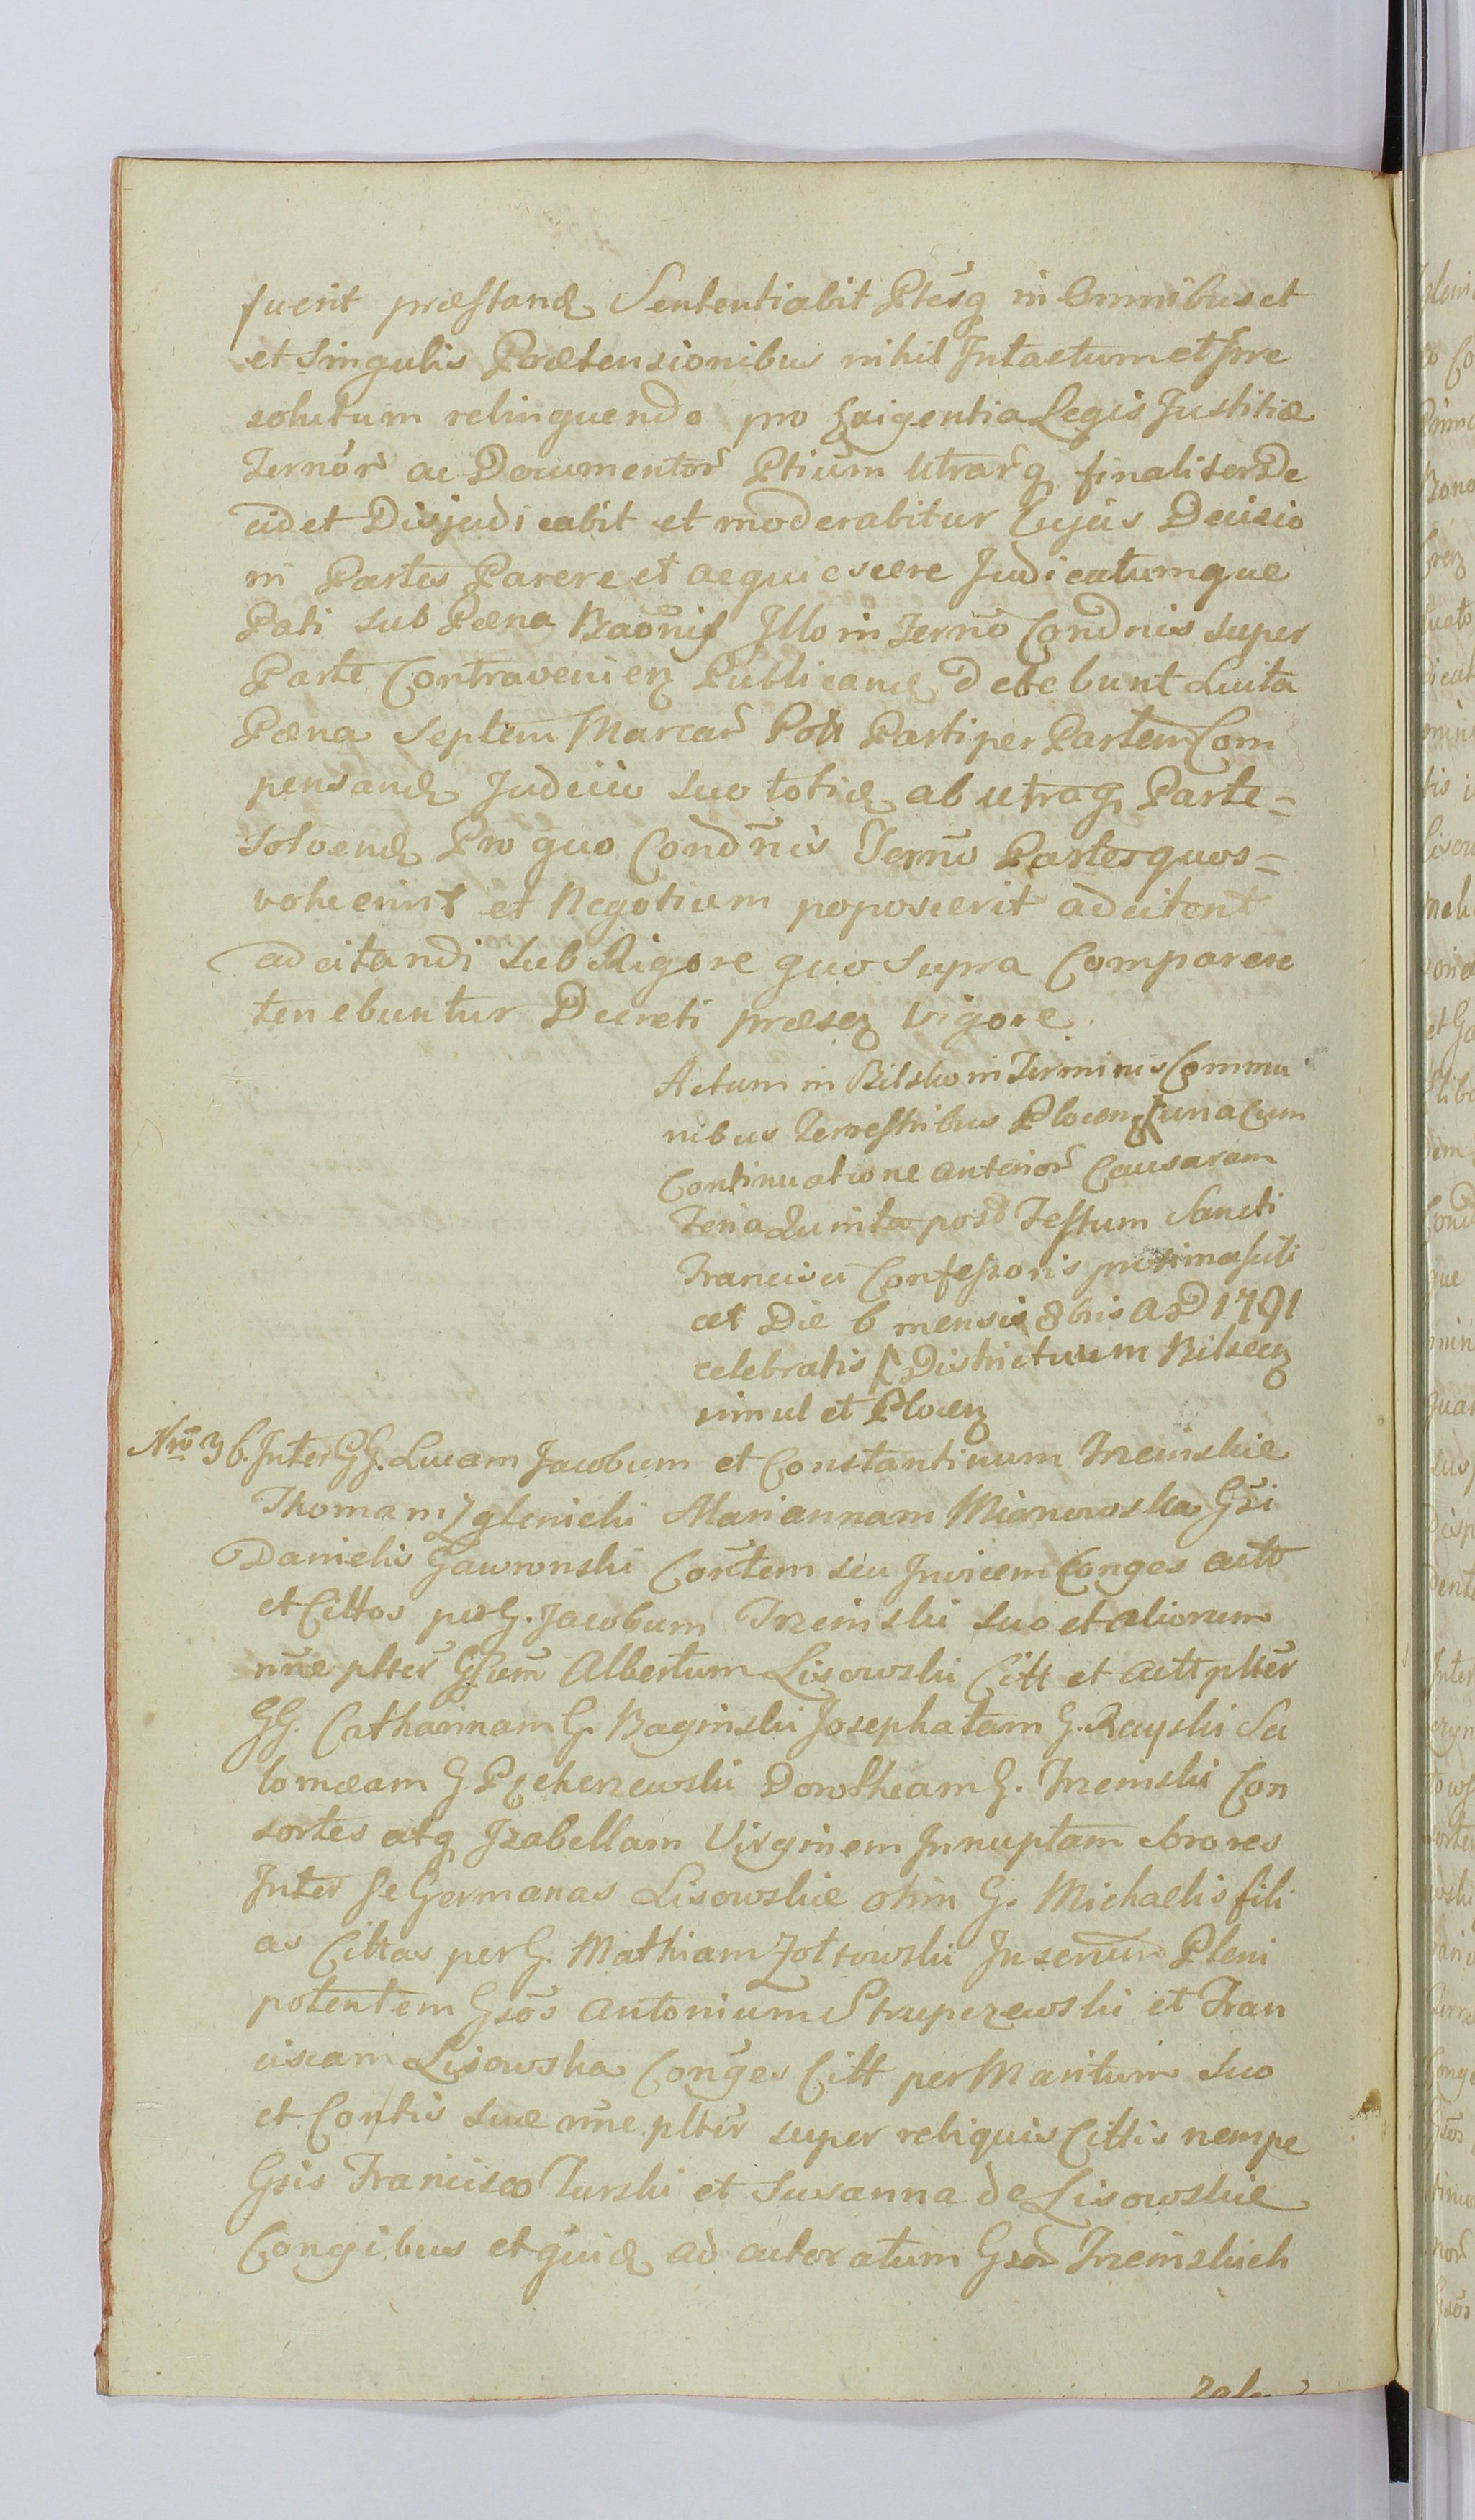 fuerit præstand Sententiabit Ptesq in Omnibus et
et Singulis Prætensionibus nihil Intactum et Irre
solutum relinquendo pro Exigentia Legis Justitiæ
Ternór ac Documentor Ptium Utrarq finaliter De
cidet Disjudicabit et moderabitur Cujus Decisio
ni Partes Parere et acquiescere Judicatumque
Pati sub Pæna Baonis Illo in Terno Condnis super
Parte Contravenien Publicand debebunt Luita
Pæna Septem Marcar Pol Parti per Partem Com
pensand Judicio suo totid ab utraq Parte=
solvend Pro quo Condnis Terno Partes quos=
voluerint et Negotium poposcerit adcitent
adcitandi sub Rigore quo supra Comparere
tenebuntur Decreti præsen Vigore.
Actum in Bilsko in Terminis Commu
nibus Terrestribus Plocen una Cum
Continuatione anterior Causarum
Feria Quinta post Festum Sancti
Francisci Confessoris proxima scili
cet Die 6 mensis 8bris AD 1791
celebratis Districtuum Bilscen
simul et Plocen
Nro 36. Inter GG. Lucam Jacobum et Constantinum Trzcinskie
Thomam Zglenicki Mariannam Mianowska Gsi
Danielis Gawronski Contem seu Invicem Conges acto
et Cittos per G. Jacobum Trzcinski suo et aliorum
nne plter Gsum Albertum Lisowski Citt et act plter
GG. Catharinam G. Baginski Josephatam G. Rayski Sa
lomeam G. Pecherzewski Dorotheam G. Trzcinski Con
sortes atq Izabellam Virginem Innuptam Sorores
Inter se Germanas Lisowskie olim G. Michaelis fili
as Cittas per G. Mathiam Zoltowski Inserum Pleni
potentem Gsos Antonium Strupczewski et Fran
ciscam Lisowska Conges Citt per Maritum suo
et Contis suæ nne plter super reliquis Cittis nempe
Gsis Francisco Turski et Susanna de Lisowskie
Congibus et quid ad actoratum Gsor Trzcinskich